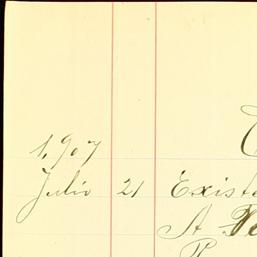 1,907
Julio 21 Exist
A